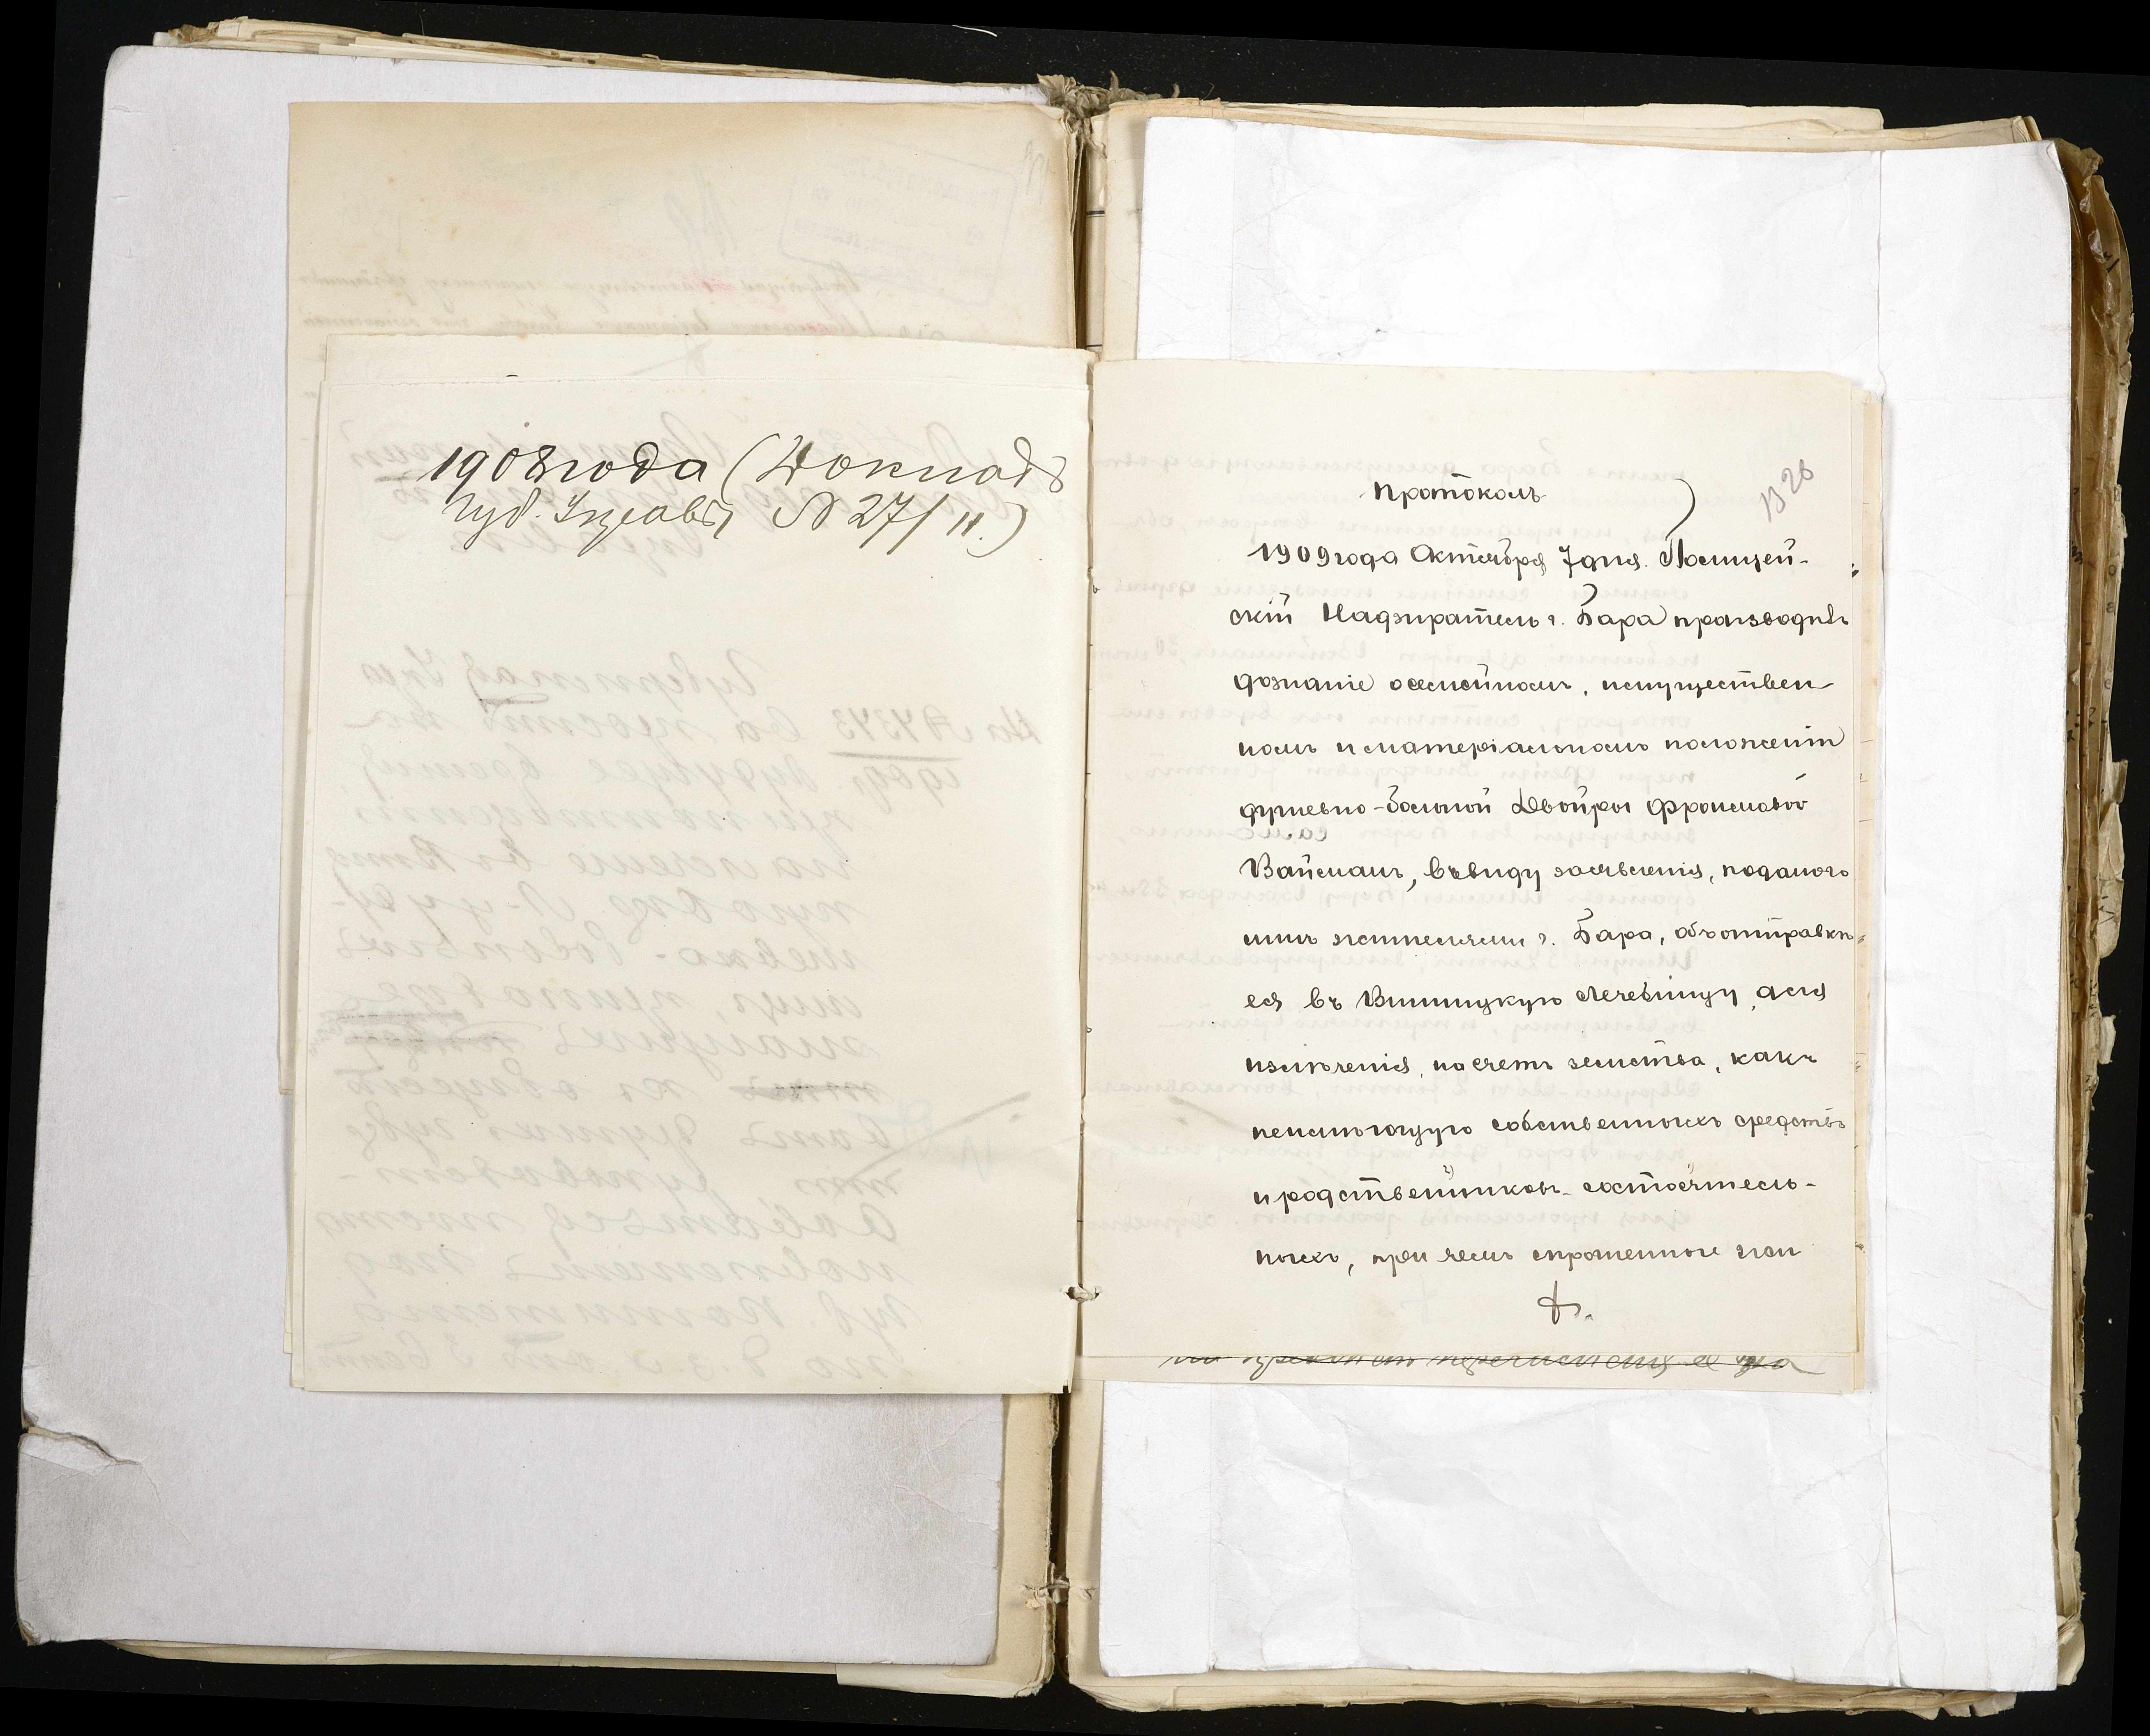 1908 года (Докладъ
Губ. Управы № 27/11.)
1326
Протоколъ
1909 года Октября 7 дня. Полицей-
скій Надзиратель г. Бара производилъ
дознаніе о семейномъ, имуществен
номъ и матеріальномъ положеніи
душевно-больной Двойры Фроимовой
Вайсман, въ виду заявленія, поданого
ими жителями г. Бара, объ отправкѣ
ея въ Винницкую лечебницу, для
излеченія, на счетъ земства, какъ
неимеющую собственныхъ средствъ
и родственниковъ состоятель-
ныхъ, при чемъ спрошенные
перечисленія ея на